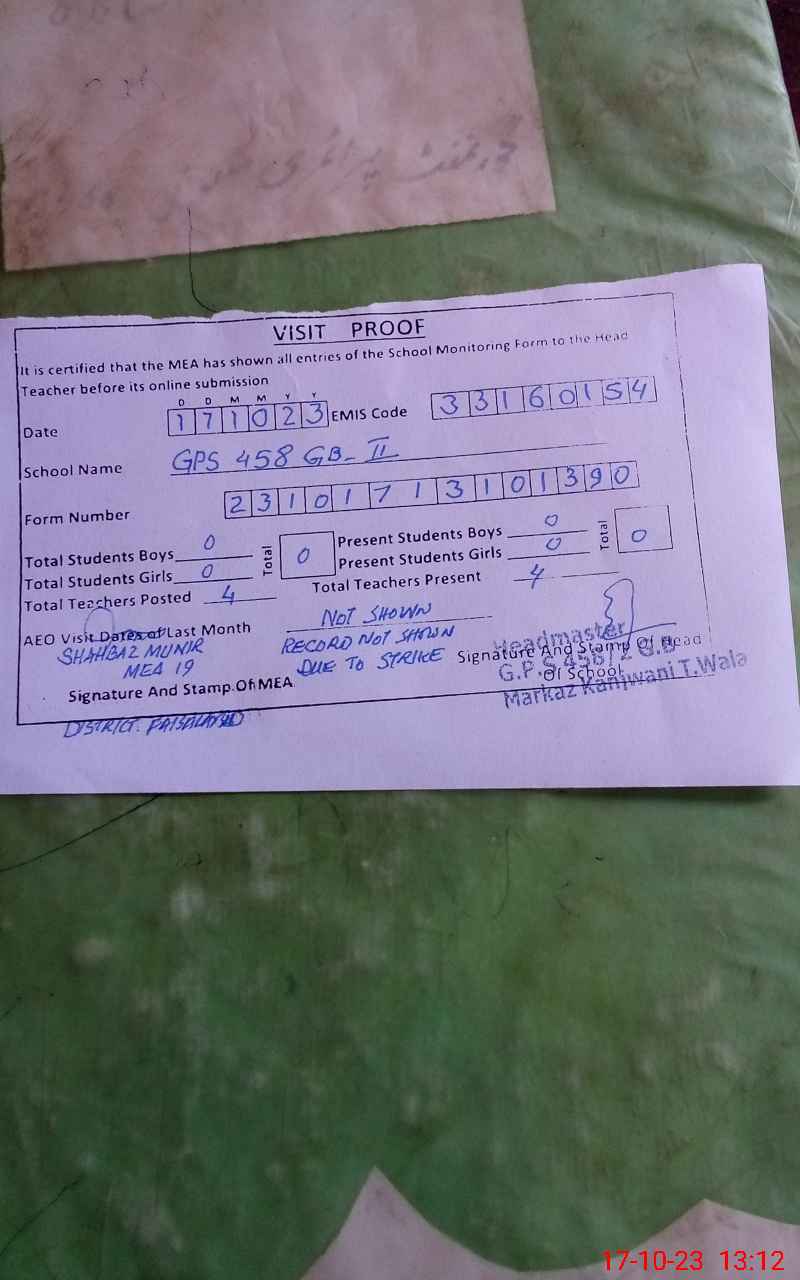 گورنمنٹ پرائمری سکول
VISIT PROOF
It is certified that the MEA has shown all entries of the School Monitoring Form to the Head
Teacher before its online submission
D D M M Y Y
Date 1 7 1 0 2 3 EMIS Code 3 3 1 6 0 1 5 4
School Name GPS 458 GB- II
Form Number 2 3 1 0 1 7 1 3 1 0 1 3 9 0
Total Students Boys 0 Total 0 Present Students Boys 0 Total 0
Total Students Girls 0 Present Students Girls 0
Total Teachers Posted 4 Total Teachers Present 4
AEO Visit Dates of Last Month NOT SHOWN
SHAHBAZ MUNIR RECORD NOT SHOWN
MEA 19 DUE TO STRIKE
Signature And Stamp Of MEA
Signature And Stamp Of Head
Of School
Headmaster
G.P.S 458/2 G.B
Markaz Kanjwani T.Wala
DISTRICT. FAISALABAD
17-10-23 13:12